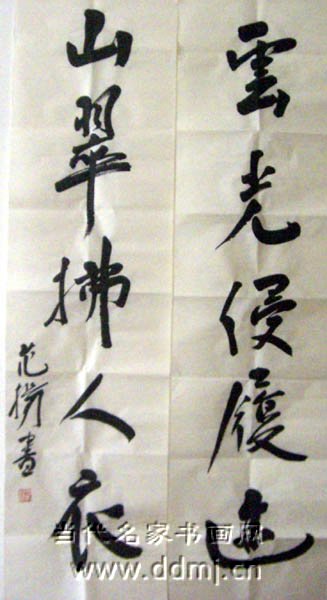 雲光侵履迹
山翠拂人衣
范
書
当代名家书画网
www.ddmj.cn